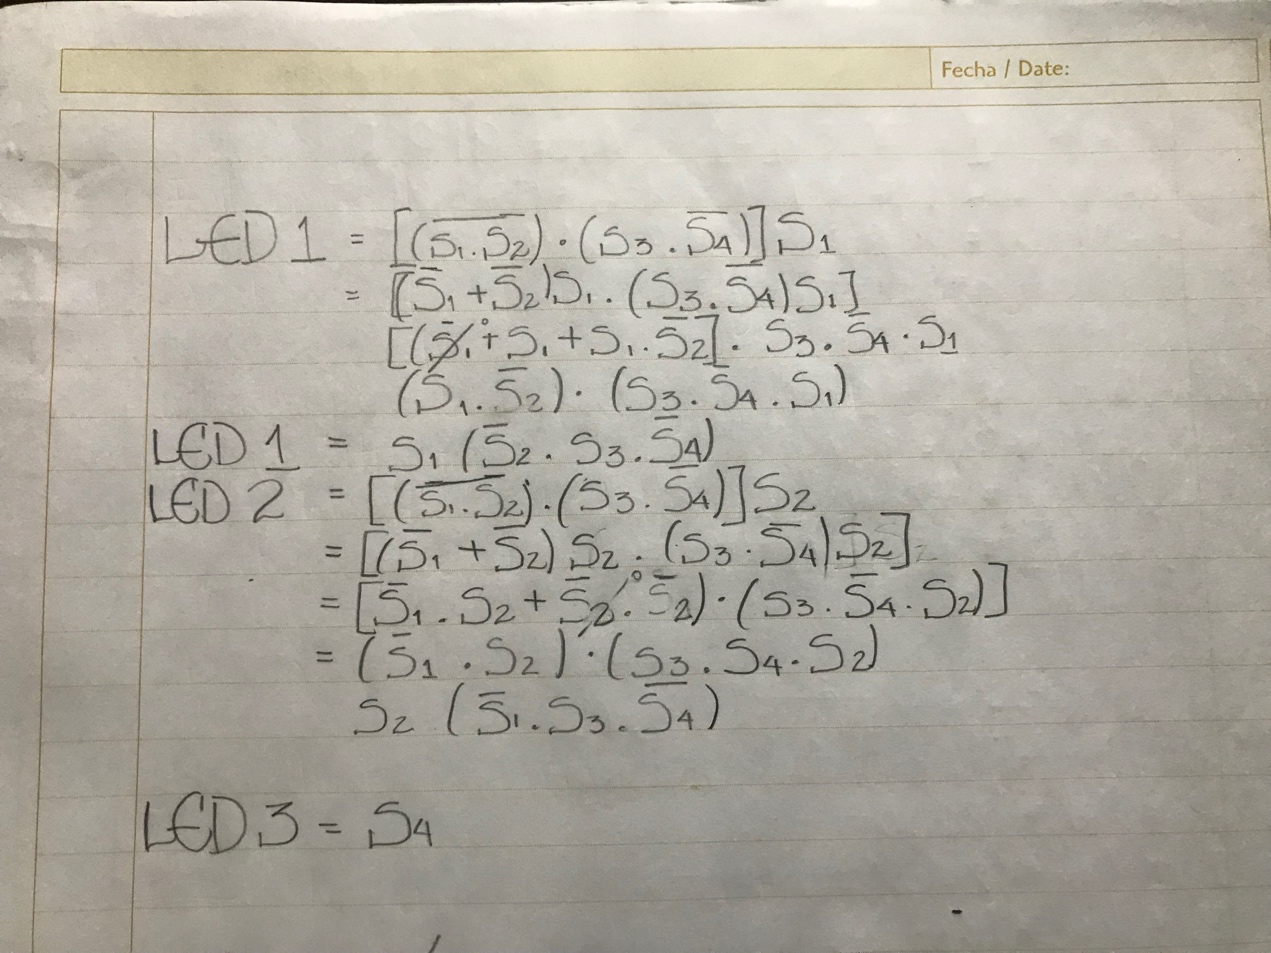 Fecha / Date:
LED 1 = [(S̅₁.S̅₂)‾ · (S₃ . S̅₄)] S₁
= [(S̅₁ + S̅₂)S₁ . (S₃. S̅₄)S₁]
[(S̅₁⁰ + S₁ + S₁. S̅₂] · S₃. S̅₄ · S₁
(S₁. S̅₂) · (S₃. S̅₄ . S₁)
LED 1 = S₁ (S̅₂ . S₃. S̅₄)
LED 2 = [(S̅₁.S̅₂)‾ · (S₃ . S̅₄)] S₂
= [(S̅₁ + S̅₂) S₂ . (S₃ . S̅₄) S₂]
= [S̅₁ . S₂ + S̅₂ . S̅₂⁰) · (S₃. S̅₄. S₂)]
= (S̅₁ . S₂) · (S₃ . S₄ . S₂)
S₂ (S̅₁. S₃. S̅₄)
LED 3 = S₄